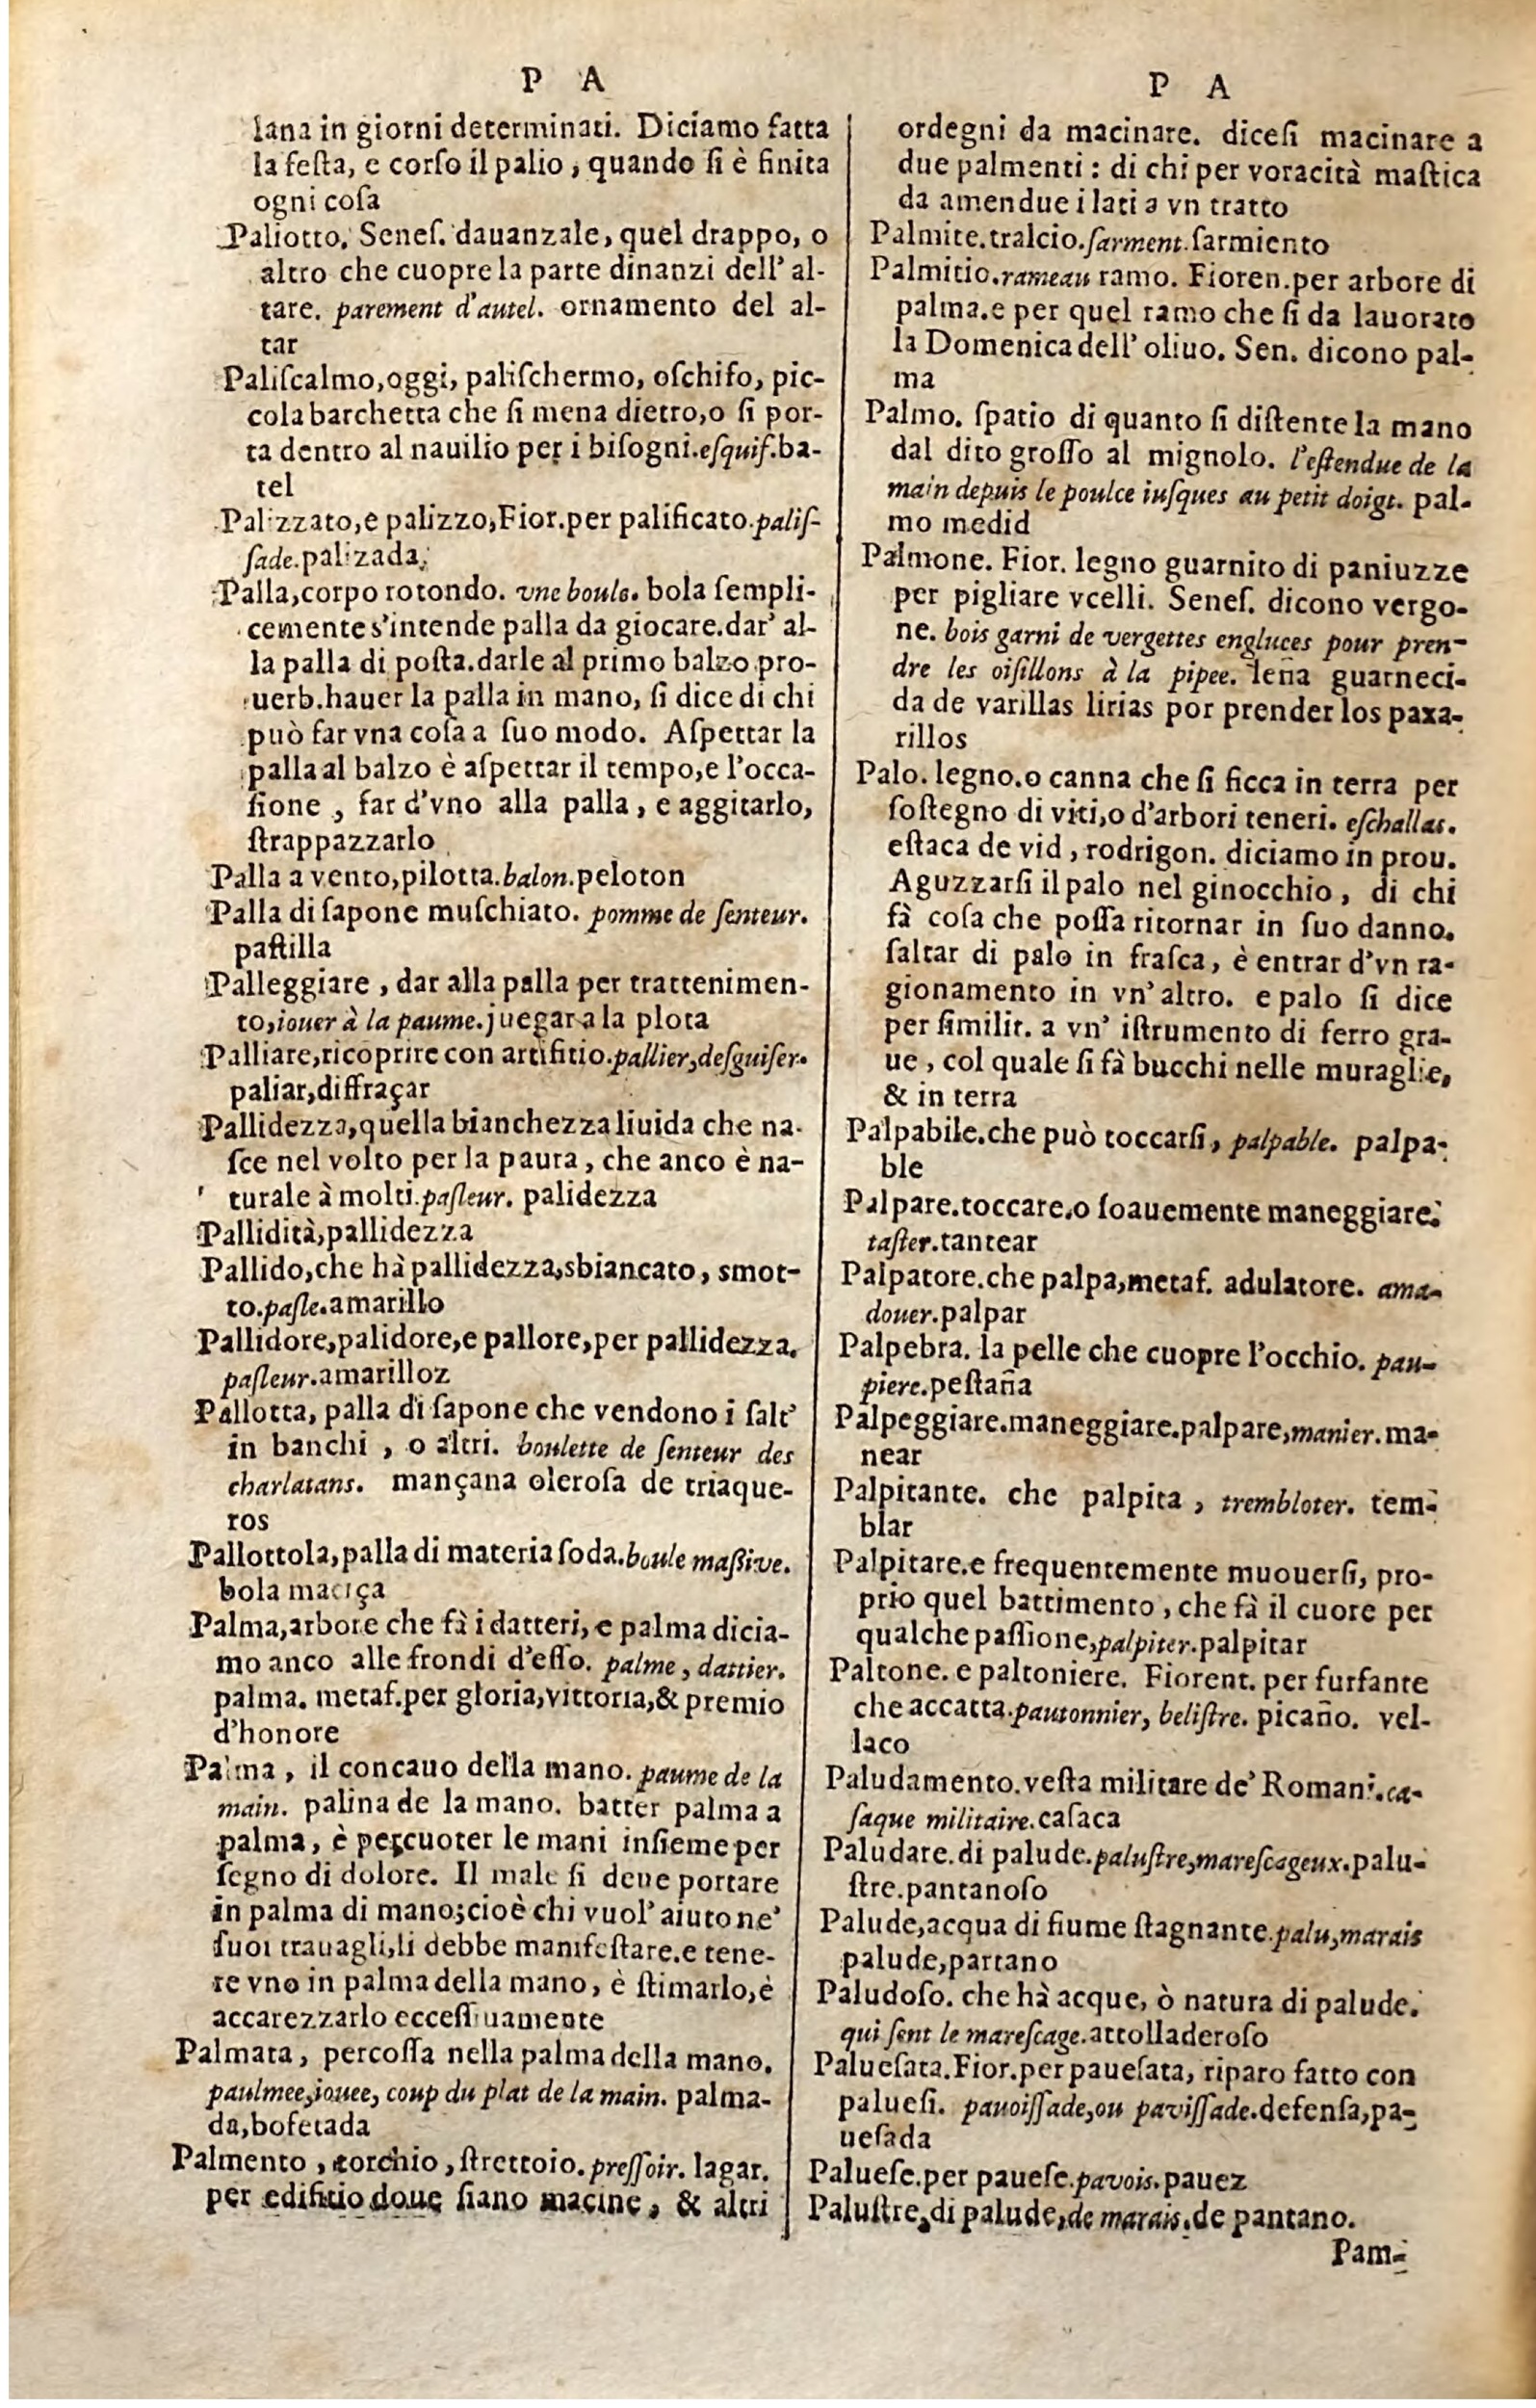 P A
lana in giorni determinati. Diciamo fatta
la feſta, e corſo il palio, quando ſi è finita
ogni coſa
Paliotto. Seneſ. dauanzale, quel drappo, o
altro che cuopre la parte dinanzi dell' al-
tare. parement d'autel. ornamento del al-
tar
Paliſcalmo, oggi, paliſchermo, oſchifo, pic-
cola barchetta che ſi mena dietro, o ſi por-
ta dentro al nauilio per i biſogni. eſquif. ba-
tel
Palizzato, e palizzo, Fior. per palificato. paliſ-
ſade. palizada.
Palla, corpo rotondo. vne boule. bola ſempli-
cemente s'intende palla da giocare. dar' al-
la palla di poſta. darle al primo balzo pro-
uerb. hauer la palla in mano, ſi dice di chi
può far vna coſa a ſuo modo. Aſpettar la
palla al balzo è aſpettar il tempo, e l'occa-
ſione, far d'vno alla palla, e aggitarlo,
ſtrappazzarlo
Palla a vento, pilotta. balon. peloton
Palla di ſapone muſchiato. pomme de ſenteur.
paſtilla
Palleggiare, dar alla palla per trattenimen-
to, iouer à la paume. juegar a la plota
Palliare, ricoprire con artifitio. pallier, deſguiſer.
paliar, diffraçar
Pallidezza, quella bianchezza liuida che na-
ſce nel volto per la paura, che anco è na-
turale à molti. paſleur. palidezza
Pallidità, pallidezza
Pallido, che hà pallidezza, sbiancato, smot-
to. paſle. amarillo
Pallidore, palidore, e pallore, per pallidezza.
paſleur. amarilloz
Pallotta, palla di ſapone che vendono i ſalt'
in banchi, o altri. boulette de ſenteur des
charlatans. mançana oleroſa de triaque-
ros
Pallottola, palla di materia ſoda. boule maßive.
bola maciça
Palma, arbore che fà i datteri, e palma dicia-
mo anco alle frondi d'eſſo. palme, dattier.
palma. metaf. per gloria, vittoria, & premio
d'honore
Palma, il concauo della mano. paume de la
main. palina de la mano. batter palma a
palma, è percuoter le mani inſieme per
ſegno di dolore. Il male ſi deue portare
in palma di mano; cioè chi vuol' aiuto ne'
ſuoi trauagli, li debbe manifeſtare. e tene-
re vno in palma della mano, è ſtimarlo, è
accarezzarlo ecceſſiuamente
Palmata, percoſſa nella palma della mano.
paulmee, iouee, coup du plat de la main. palma-
da, bofetada
Palmento, torchio, ſtrettoio. preſſoir. lagar.
per edifitio doue ſiano macine, & altri
P A
ordegni da macinare. diceſi macinare a
due palmenti: di chi per voracità maſtica
da amendue i lati a vn tratto
Palmite. tralcio. ſarment. ſarmiento
Palmitio. rameau ramo. Fioren. per arbore di
palma. e per quel ramo che ſi da lauorato
la Domenica dell' oliuo. Sen. dicono pal-
ma
Palmo. ſpatio di quanto ſi diſtente la mano
dal dito groſſo al mignolo. l'eſtendue de la
main depuis le poulce iuſques au petit doigt. pal-
mo medid
Palmone. Fior. legno guarnito di paniuzze
per pigliare vcelli. Seneſ. dicono vergo-
ne. bois garni de vergettes engluces pour pren-
dre les oiſillons à la pipee. leña guarneci-
da de varillas lirias por prender los paxa-
rillos
Palo. legno. o canna che ſi ficca in terra per
ſoſtegno di viti, o d'arbori teneri. eſchallas.
eſtaca de vid, rodrigon. diciamo in prou.
Aguzzarſi il palo nel ginocchio, di chi
fà coſa che poſſa ritornar in ſuo danno.
ſaltar di palo in fraſca, è entrar d'vn ra-
gionamento in vn' altro. e palo ſi dice
per ſimilit. a vn' iſtrumento di ferro gra-
ue, col quale ſi fà bucchi nelle muraglie,
& in terra
Palpabile. che può toccarſi, palpable. palpa-
ble
Palpare. toccare. o ſoauemente maneggiare.
taſter. tantear
Palpatore. che palpa, metaf. adulatore. ama-
douer. palpar
Palpebra. la pelle che cuopre l'occhio. pau-
piere. peſtaña
Palpeggiare. maneggiare. palpare, manier. ma-
near
Palpitante. che palpita, trembloter. tem-
blar
Palpitare. e frequentemente muouerſi, pro-
prio quel battimento, che fà il cuore per
qualche paſſione, palpiter. palpitar
Paltone. e paltoniere. Fiorent. per furfante
che accatta. pautonnier, beliſtre. picaño. vel-
laco
Paludamento. veſta militare de' Romani. ca-
ſaque militaire. caſaca
Paludare. di palude. paluſtre, mareſcageux. palu-
ſtre. pantanoſo
Palude, acqua di fiume ſtagnante. palu, marais
palude, partano
Paludoſo. che hà acque, ò natura di palude.
qui ſent le mareſcage. attolladeroſo
Palueſata. Fior. per paueſata, riparo fatto con
palueſi. pauoiſſade, ou paviſſade. defenſa, pa-
ueſada
Palueſe. per paueſe. pavois. pauez
Paluſtre, di palude, de marais. de pantano.
Pam-